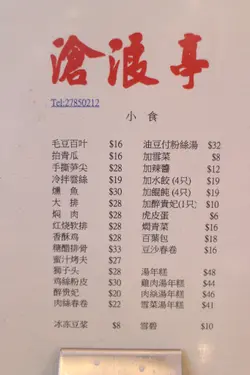 滄浪亭
Tel:27850212
小食
毛豆百叶 $16
拍青瓜 $16
手撕笋尖 $28
冷拌雲絲 $19
燻魚 $30
大排 $28
焖肉 $28
红烧软排 $28
香酥鸡 $28
糖醋排骨 $33
蜜汁烤夫 $27
狮子头 $28
鸡絲粉皮 $30
醉贵妃 $20
肉絲春卷 $22
冰冻豆浆 $8
油豆付粉絲湯 $32
加雪菜 $8
加辣醬 $12
加水餃 (4只) $19
加餛飩 (4只) $19
加醉貴妃(1只) $10
虎皮蛋 $6
焗青菜 $16
百葉包 $18
豆沙春卷 $16
湯年糕 $48
雞肉湯年糕 $44
肉絲湯年糕 $46
雪菜湯年糕 $41
雪碧 $10